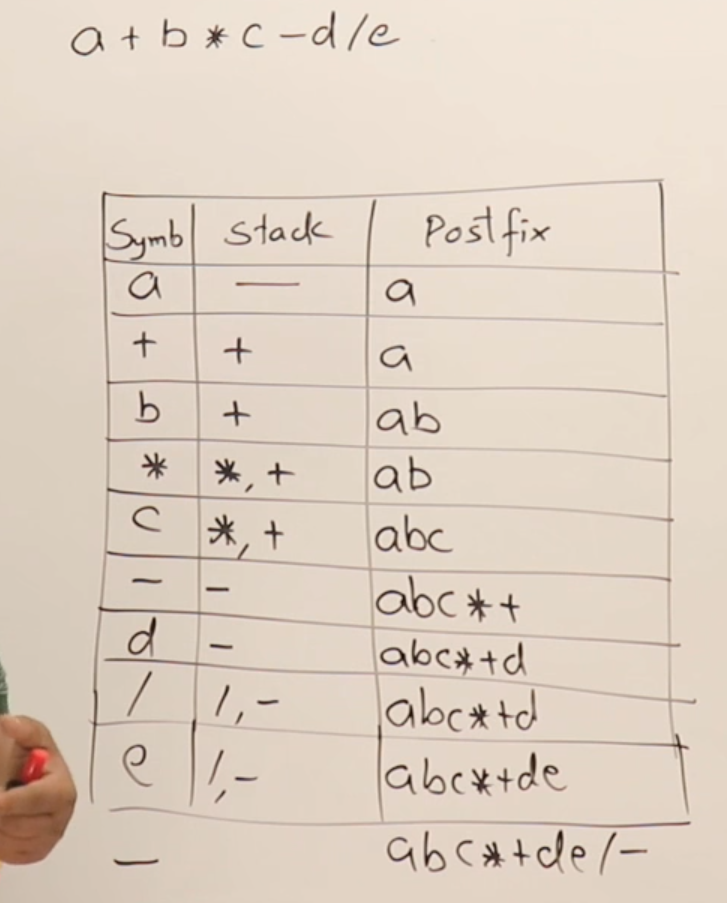 a + b * c - d / e
Symb Stack Postfix
a — a
+ + a
b + ab
* *, + ab
c *, + abc
- - abc*+
d - abc*+d
/ /, - abc*+d
e /, - abc*+de
— abc*+de/-